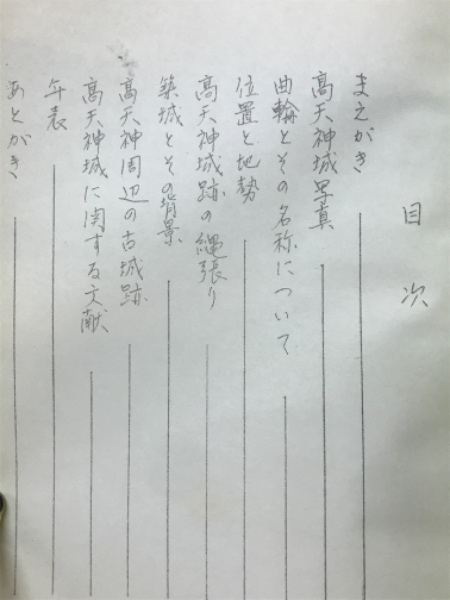 目次
まえがき
高天神城写真
曲輪とその名称について
位置と地勢
高天神城跡の縄張り
築城とその背景
高天神周辺の古城跡
高天神城に関する文献
年表
あとがき